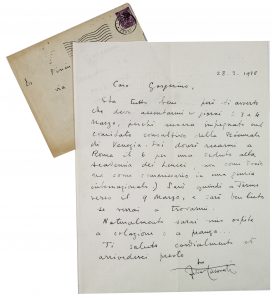 28.2.1978
Caro Gasperino,
Sta tutto bene... però ti avverto
che devo assentarmi i giorni: 3 e 4
Marzo, perché sono impegnato nel
comitato consultivo della Biennale
di Venezia. Poi dovrei recarmi a
Roma il 6 per una seduta alla
Accademia dei Lincei
come commissario in una giuria
internazionale) Sarò quindi a
verso il 9 Marzo, e sarò ben lieto
se verrai a trovarmi.
Naturalmente sarai mio ospite
a colazione o a pranzo...
Ti saluto cordialmente ed
arrivederci presto